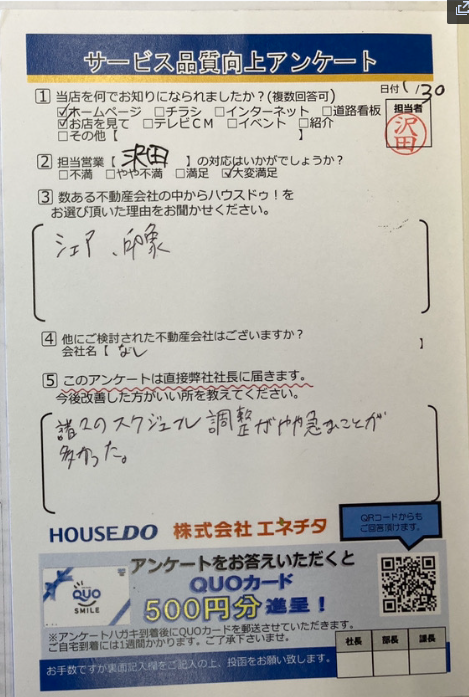 サービス品質向上アンケート
日付 1/30
1 当店を何でお知りになられましたか?(複数回答可)
☑ホームページ □チラシ □インターネット □道路看板
☑お店を見て □テレビCM □イベント □紹介
□その他【 】
担当者
沢田
2 担当営業【 沢田 】の対応はいかがでしょうか?
□不満 □やや不満 □満足 ☑大変満足
3 数ある不動産会社の中からハウスドゥ!を
お選び頂いた理由をお聞かせください。
シェア、印象
4 他にご検討された不動産会社はございますか?
会社名【 なし 】
5 このアンケートは直接弊社社長に届きます。
今後改善した方がいい所を教えてください。
諸々のスケジュール調整がやや急なことが
多かった。
QRコードからも
ご回答頂けます。
HOUSEDO 株式会社 エネチタ
アンケートをお答えいただくと
QUOカード
500円分進呈!
QUO
SMILE
※アンケートハガキ到着後にQUOカードを郵送させていただきます。
ご自宅到着には1週間かかります。ご了承下さいませ。
社長 部長 課長
お手数ですが裏面記入欄をご記入の上、投函をお願い致します。